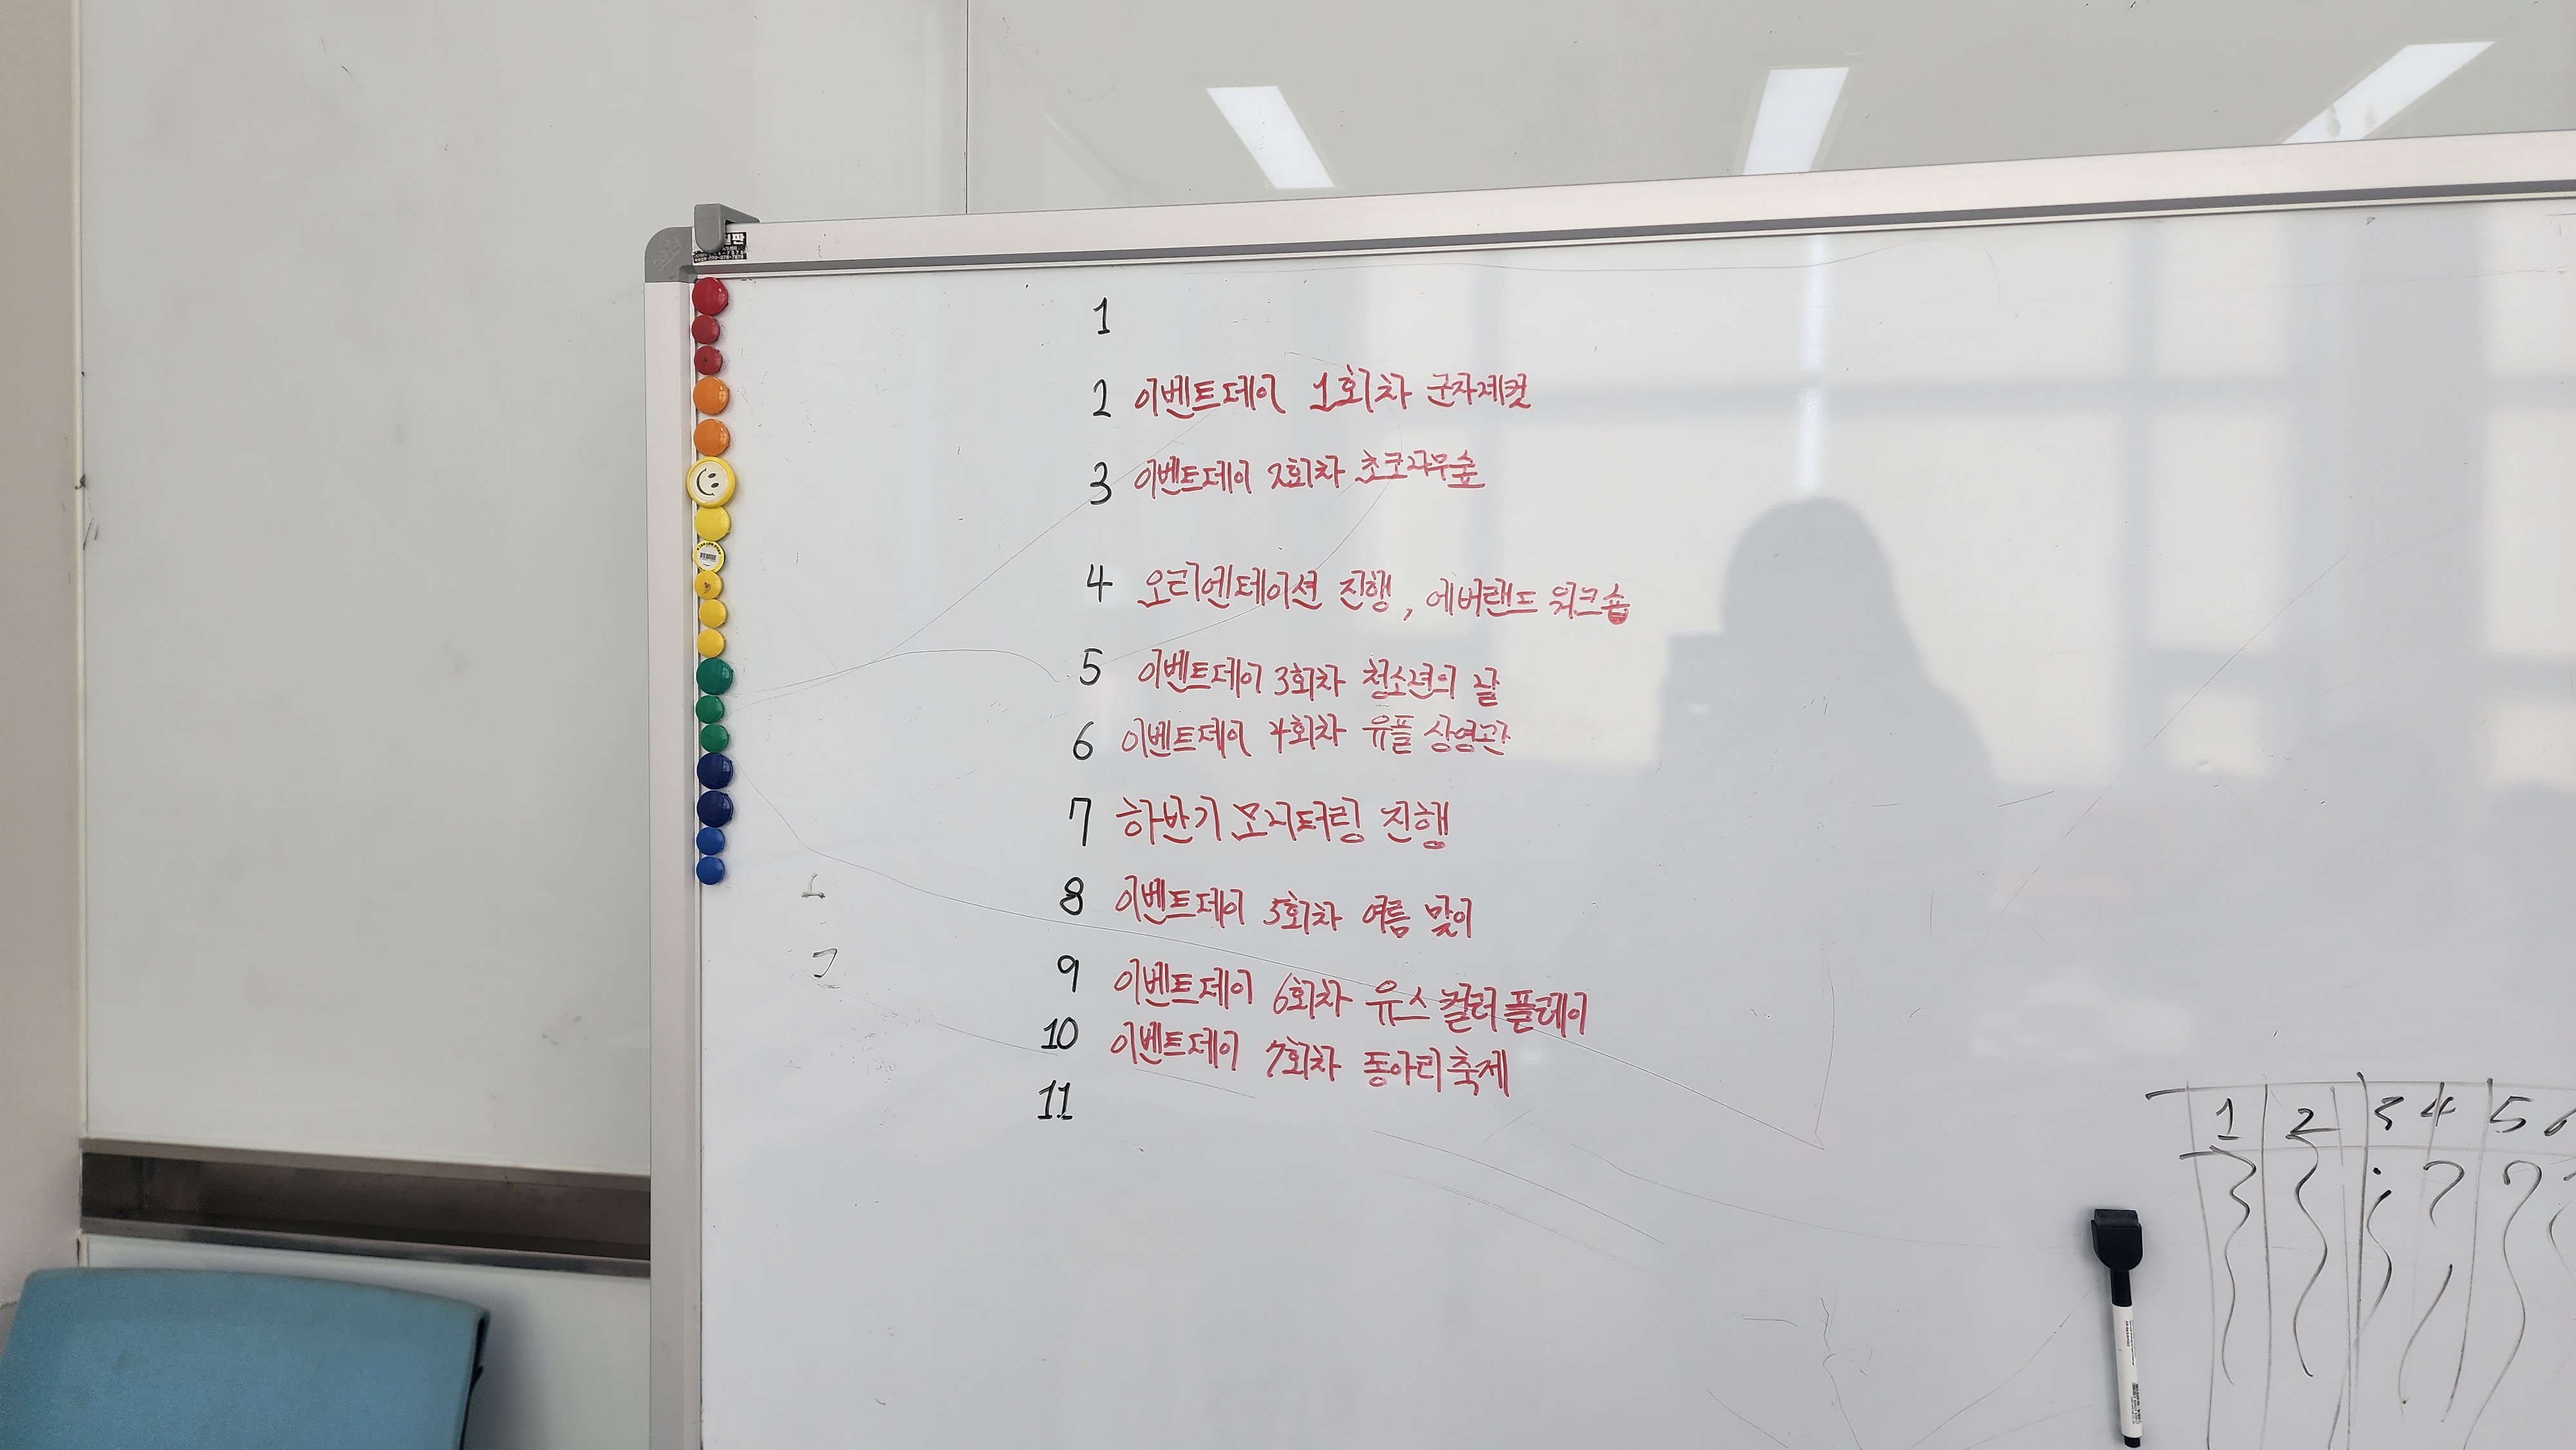 1
2 이벤트데이 1회차 군자네컷
3 이벤트데이 2회차 초코나무숲
4 오리엔테이션 진행, 에버랜드 워크숍
5 이벤트데이 3회차 청소년의 날
6 이벤트데이 4회차 유플 상영관
7 하반기 모니터링 진행
8 이벤트데이 5회차 여름 맞이
9 이벤트데이 6회차 유스 컬러 플레이
10 이벤트데이 7회차 동아리 축제
11
1 2 3 4 5